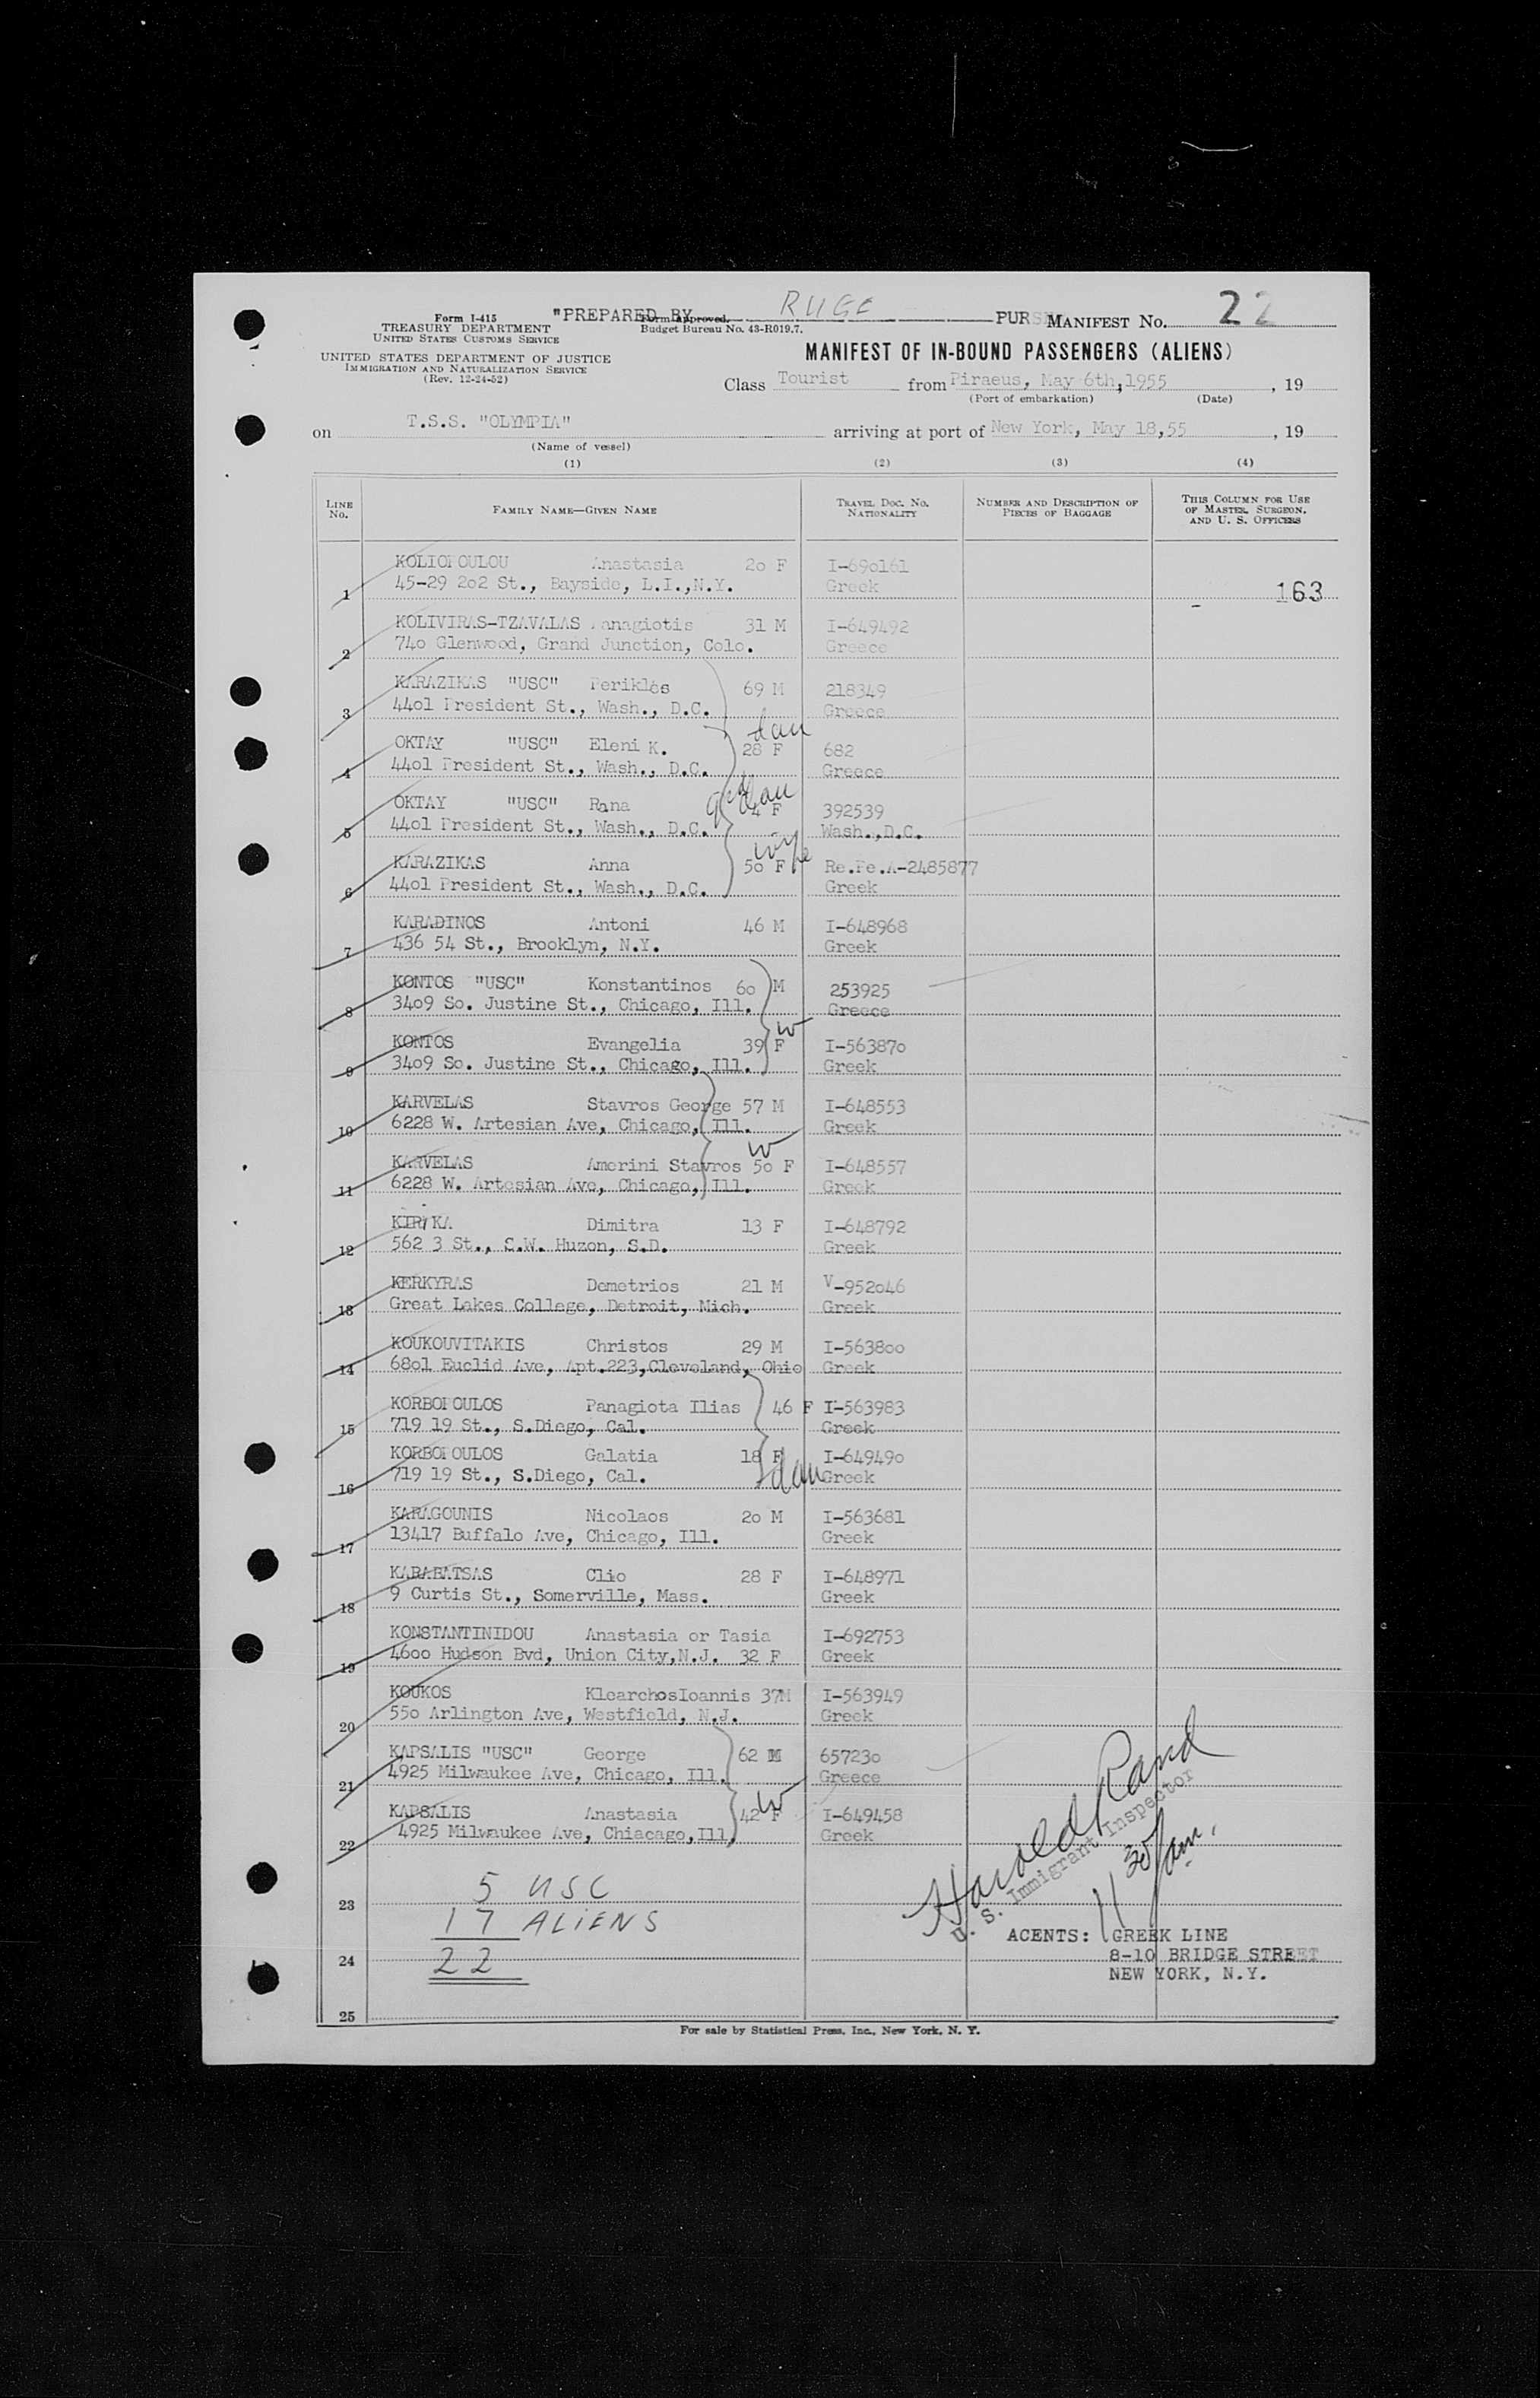 Form I-415
TREASURY DEPARTMENT
UNITED STATES CUSTOMS SERVICE
UNITED STATES DEPARTMENT OF JUSTICE
IMMIGRATION AND NATURALIZATION SERVICE
(Rev. 12-24-52)
"PREPARED BY RUGE PURS
Form approved.
Budget Bureau No. 43-R019.7.
MANIFEST NO. 22
MANIFEST OF IN-BOUND PASSENGERS (ALIENS)
Class Tourist from Piraeus, May 6th,1955, 19
(Port of embarkation) (Date)
on T.S.S. "OLYMPIA" arriving at port of New York, May 18,55, 19
(Name of vessel)
(1) (2) (3) (4)
LINE NO. FAMILY NAME—GIVEN NAME TRAVEL DOC. NO. NATIONALITY NUMBER AND DESCRIPTION OF PIECES OF BAGGAGE THIS COLUMN FOR USE OF MASTER, SURGEON, AND U. S. OFFICERS
KOLIOPOULOU Anastasia 20 F I-690161
1 45-29 202 St., Bayside, L.I.,N.Y. Greek 163
KOLIVIRAS-TZAVALAS Panagiotis 31 M I-649492
2 740 Glenwood, Grand Junction, Colo. Greece
KARAZIKAS "USC" Perikles 69 M 218349
3 4401 President St., Wash., D.C. Greece
dau
OKTAY "USC" Eleni K. 28 F 682
4 4401 President St., Wash., D.C. Greece
gd dau
OKTAY "USC" Rana 04 F 392539
5 4401 President St., Wash., D.C. Wash.,D.C.
wife
KARAZIKAS Anna 50 F Re.Pe.A-2485877
6 4401 President St., Wash., D.C. Greek
KARADINOS Antoni 46 M I-648968
7 436 54 St., Brooklyn, N.Y. Greek
KONTOS "USC" Konstantinos 60 M 253925
8 3409 So. Justine St., Chicago, Ill. Greece
w
KONTOS Evangelia 39 F I-563870
9 3409 So. Justine St., Chicago, Ill. Greek
KARVELAS Stavros George 57 M I-648553
10 6228 W. Artesian Ave, Chicago, Ill. Greek
w
KARVELAS Amerini Stavros 50 F I-648557
11 6228 W. Artesian Ave, Chicago, Ill. Greek
Dimitra 13 F I-648792
12 562 3 St., S.W. Huzon, S.D. Greek
KERKYRAS Demetrios 21 M V-952046
13 Great Lakes College, Detroit, Mich. Greek
KOUKOUVITAKIS Christos 29 M I-563800
14 6801 Euclid Ave, Apt.223,Cleveland, Ohio Greek
KORBOPOULOS Panagiota Ilias 46 F I-563983
15 719 19 St., S.Diego, Cal. Greek
KORBOPOULOS Galatia 18 F I-649490
dau
16 719 19 St., S.Diego, Cal. Greek
KARAGOUNIS Nicolaos 20 M I-563681
17 13417 Buffalo Ave, Chicago, Ill. Greek
KARABATSAS Clio 28 F I-648971
18 9 Curtis St., Somerville, Mass. Greek
KONSTANTINIDOU Anastasia or Tasia I-692753
19 4600 Hudson Bvd, Union City,N.J. 32 F Greek
KOUKOS KlearchosIoannis 37M I-563949
20 550 Arlington Ave, Westfield, N.J. Greek
KAPSALIS "USC" George 62 M 657230
21 4925 Milwaukee Ave, Chicago, Ill. Greece
w
KAPSALIS Anastasia 42 F I-649458
22 4925 Milwaukee Ave, Chiacago,Ill. Greek
Harold Rand
U. S. Immigrant Inspector
11 30 am.
23 5 USC
17 ALIENS
24 22
25
AGENTS: GREEK LINE
8-10 BRIDGE STREET
NEW YORK, N.Y.
For sale by Statistical Press, Inc., New York, N. Y.